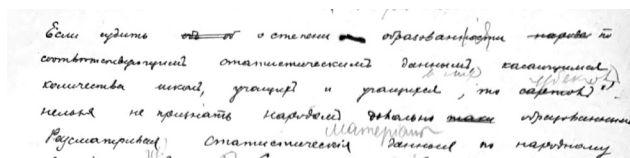 Если судить о степени образованности народа по
соответствующимъ статистическимъ даннымъ, касающимся
количества школъ, учащихъ и учащихся, то
нельзя не признать народомъ довольно образованнымъ
матеріалъ
Разсматривая статистическія данныя по народному